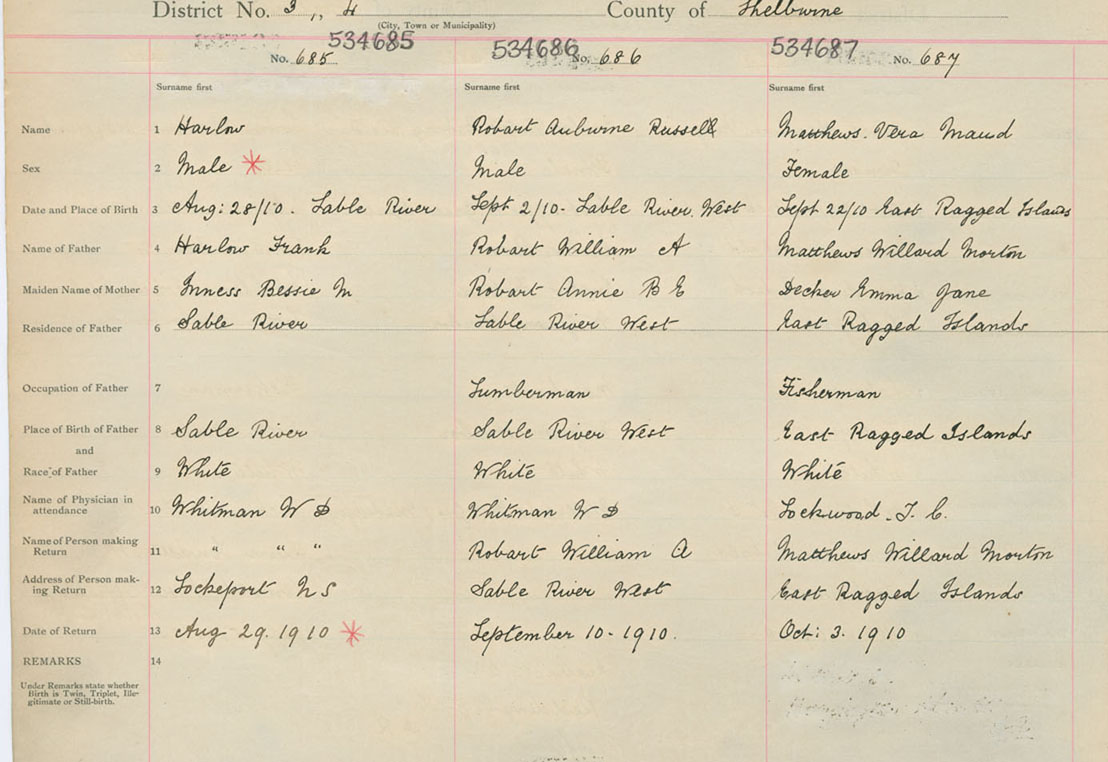 District No. 3,, 4 County of Shelburne
(City, Town or Municipality)
534685 534686 534687
No. 685 No. 686 No. 687
Surname first Surname first Surname first
Name 1 Harlow Robart Auburne Russell Matthews. Vera Maud
Sex 2 Male * Male Female
Date and Place of Birth 3 Aug: 28/10. Sable River Sept 2/10- Sable River. West Sept 22/10 East Ragged Islands
Name of Father 4 Harlow Frank Robart William A Matthews Willard Morton
Maiden Name of Mother 5 Inness Bessie M Robart Annie B E Decker Emma Jane
Residence of Father 6 Sable River Sable River West East Ragged Islands
Occupation of Father 7 Lumberman Fisherman
Place of Birth of Father 8 Sable River Sable River West East Ragged Islands
and
Race of Father 9 White White White
Name of Physician in
attendance 10 Whitman W D Whitman W D Lockwood. T. C.
Name of Person making
Return 11 " " " Robart William A Matthews Willard Morton
Address of Person mak-
ing Return 12 Lockeport N S Sable River West East Ragged Islands
Date of Return 13 Aug 29. 1910 * September 10-1910. Oct: 3. 1910
REMARKS 14
Under Remarks state whether
Birth is Twin, Triplet, Ille-
gitimate or Still-birth.